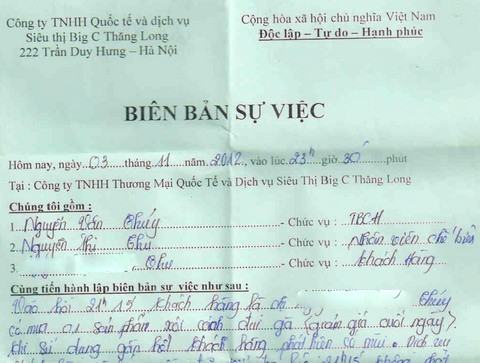 Công ty TNHH Quốc tế và dịch vụ
Siêu thị Big C Thăng Long
222 Trần Duy Hưng – Hà Nội
Cộng hòa xã hội chủ nghĩa Việt Nam
Độc lập – Tự do – Hạnh phúc
BIÊN BẢN SỰ VIỆC
Hôm nay, ngày 03 tháng 11 năm 2012, vào lúc 23h giờ 30 phút
Tại : Công ty TNHH Thương Mại Quốc Tế và Dịch vụ Siêu Thị Big C Thăng Long
Chúng tôi gồm :
1. Nguyễn Văn Thúy - Chức vụ : TBCH
2. Nguyễn Thị Thu - Chức vụ : Nhân viên chế biến
3. Thu - Chức vụ : Khách Hàng
Cùng tiến hành lập biên bản sự việc như sau :
Vào hồi 21h15 khách hàng là chị Thúy
có mua 01 sản phẩm xôi gà (giảm giá cuối ngày).
Khi sử dụng gần hết khách hàng phát hiện có mùi